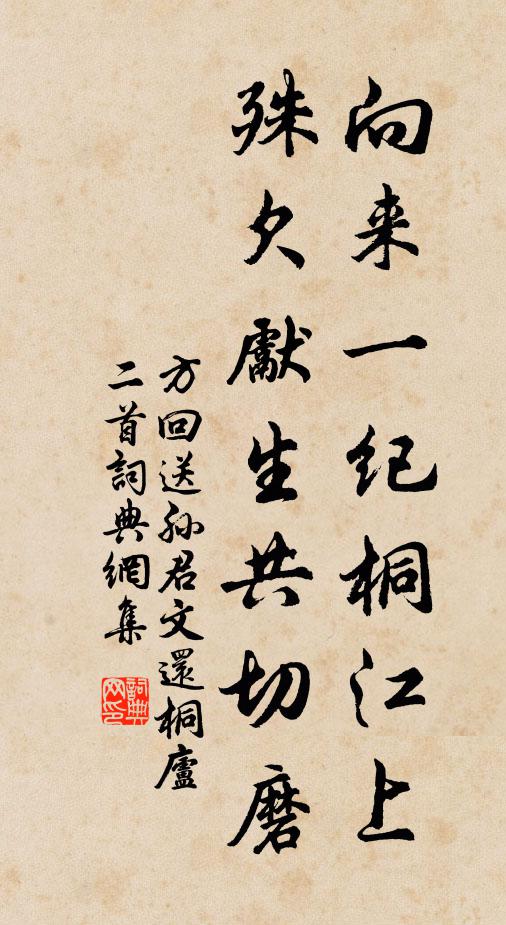 向来一纪桐江上
殊欠獻生共切磨
方回送孙君文還桐廬
二首詞典網集
詞典网印